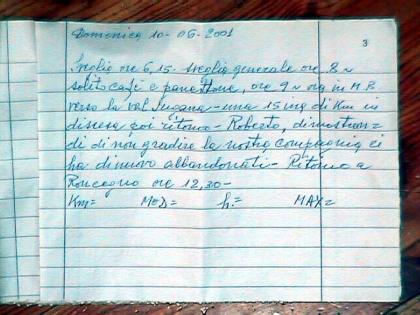 Domenica 10-06-2001
3
Sveglia ore 6,15- sveglia generale ore 8~
solito caffè e panettone, ore 9~ ora in M.B.
verso la val Sugana - una 15 ina di Km in
discesa poi ritorno - Roberto, dimostran=
do di non gradire la nostra compagnia ci
ha di nuovo abbandonati - Ritorno a
Roncegno ore 12,30-
Km= MED= h.= MAX=